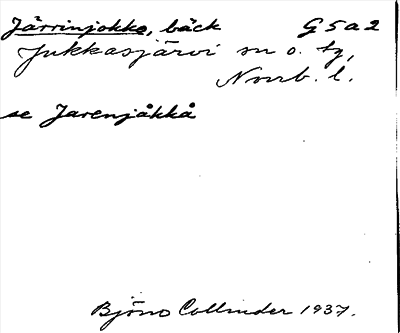 Järrinjokko, bäck G5a2
Jukkasjärvi sn o. tg,
Norrb. l.
se Jarenjåkkå
Björn Collinder 1937.